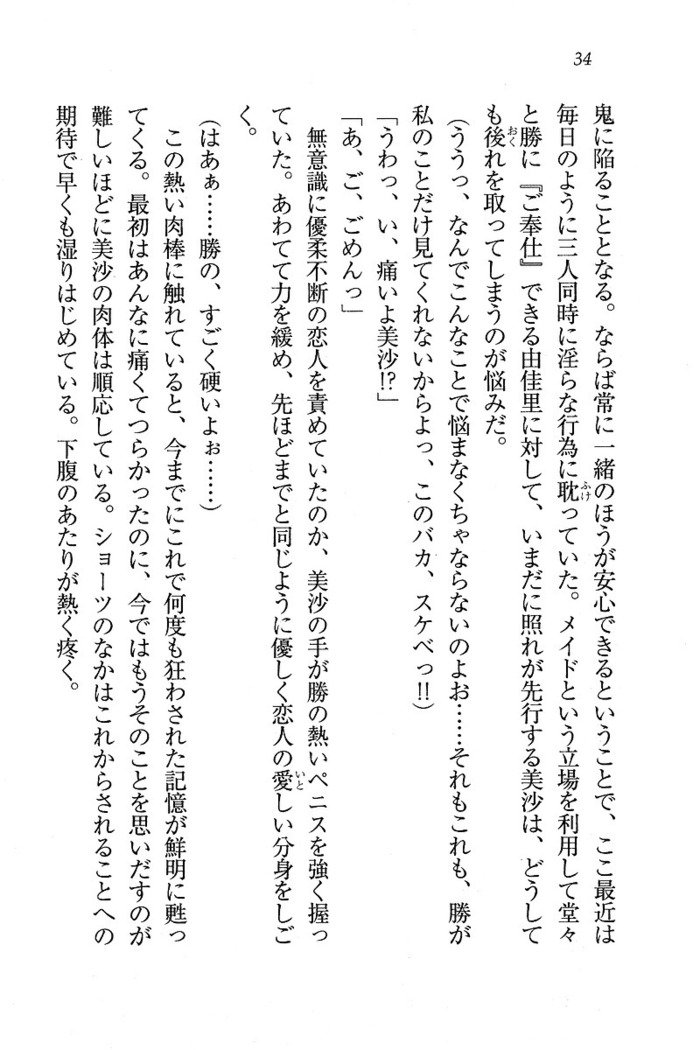 34
鬼に陥ることとなる。ならば常に一緒のほうが安心できるということで、ここ最近は
毎日のように三人同時に淫らな行為に耽っていた。メイドという立場を利用して堂々
と勝に『ご奉仕』できる由佳里に対して、いまだに照れが先行する美沙は、どうして
も後れを取ってしまうのが悩みだ。
（ううっ、なんでこんなことで悩まなくちゃならないのよぉ……それもこれも、勝が
私のことだけ見てくれないからよっ、このバカ、スケベっ!!）
「うわっ、い、痛いよ美沙!?」
「あ、ご、ごめんっ」
無意識に優柔不断の恋人を責めていたのか、美沙の手が勝の熱いペニスを強く握っ
ていた。あわてて力を緩め、先ほどまでと同じように優しく恋人の愛しい分身をしご
く。
（はあぁ……勝の、すごく硬いよぉ……）
この熱い肉棒に触れていると、今までにこれで何度も狂わされた記憶が鮮明に甦っ
てくる。最初はあんなに痛くてつらかったのに、今ではもうそのことを思いだすのが
難しいほどに美沙の肉体は順応している。ショーツのなかはこれからされることへの
期待で早くも湿りはじめている。下腹のあたりが熱く疼く。